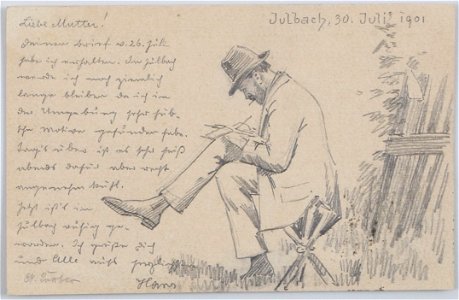 Julbach, 30. Juli 1901
Liebe Mutter!
Deinen Brief v. 26. Juli
habe ich erhalten. In Julbach
werde ich noch ziemlich
lange bleiben da ich in
der Umgebung sehr hüb-
sche Motive gefunden habe.
Tag's über ist es sehr heiß
abends dafür aber recht
angenehm kühl.
Jetzt ist's in
Julbach ruhig ge-
worden. Ich grüße Dich
und Alle aufs herzlichste
Hans